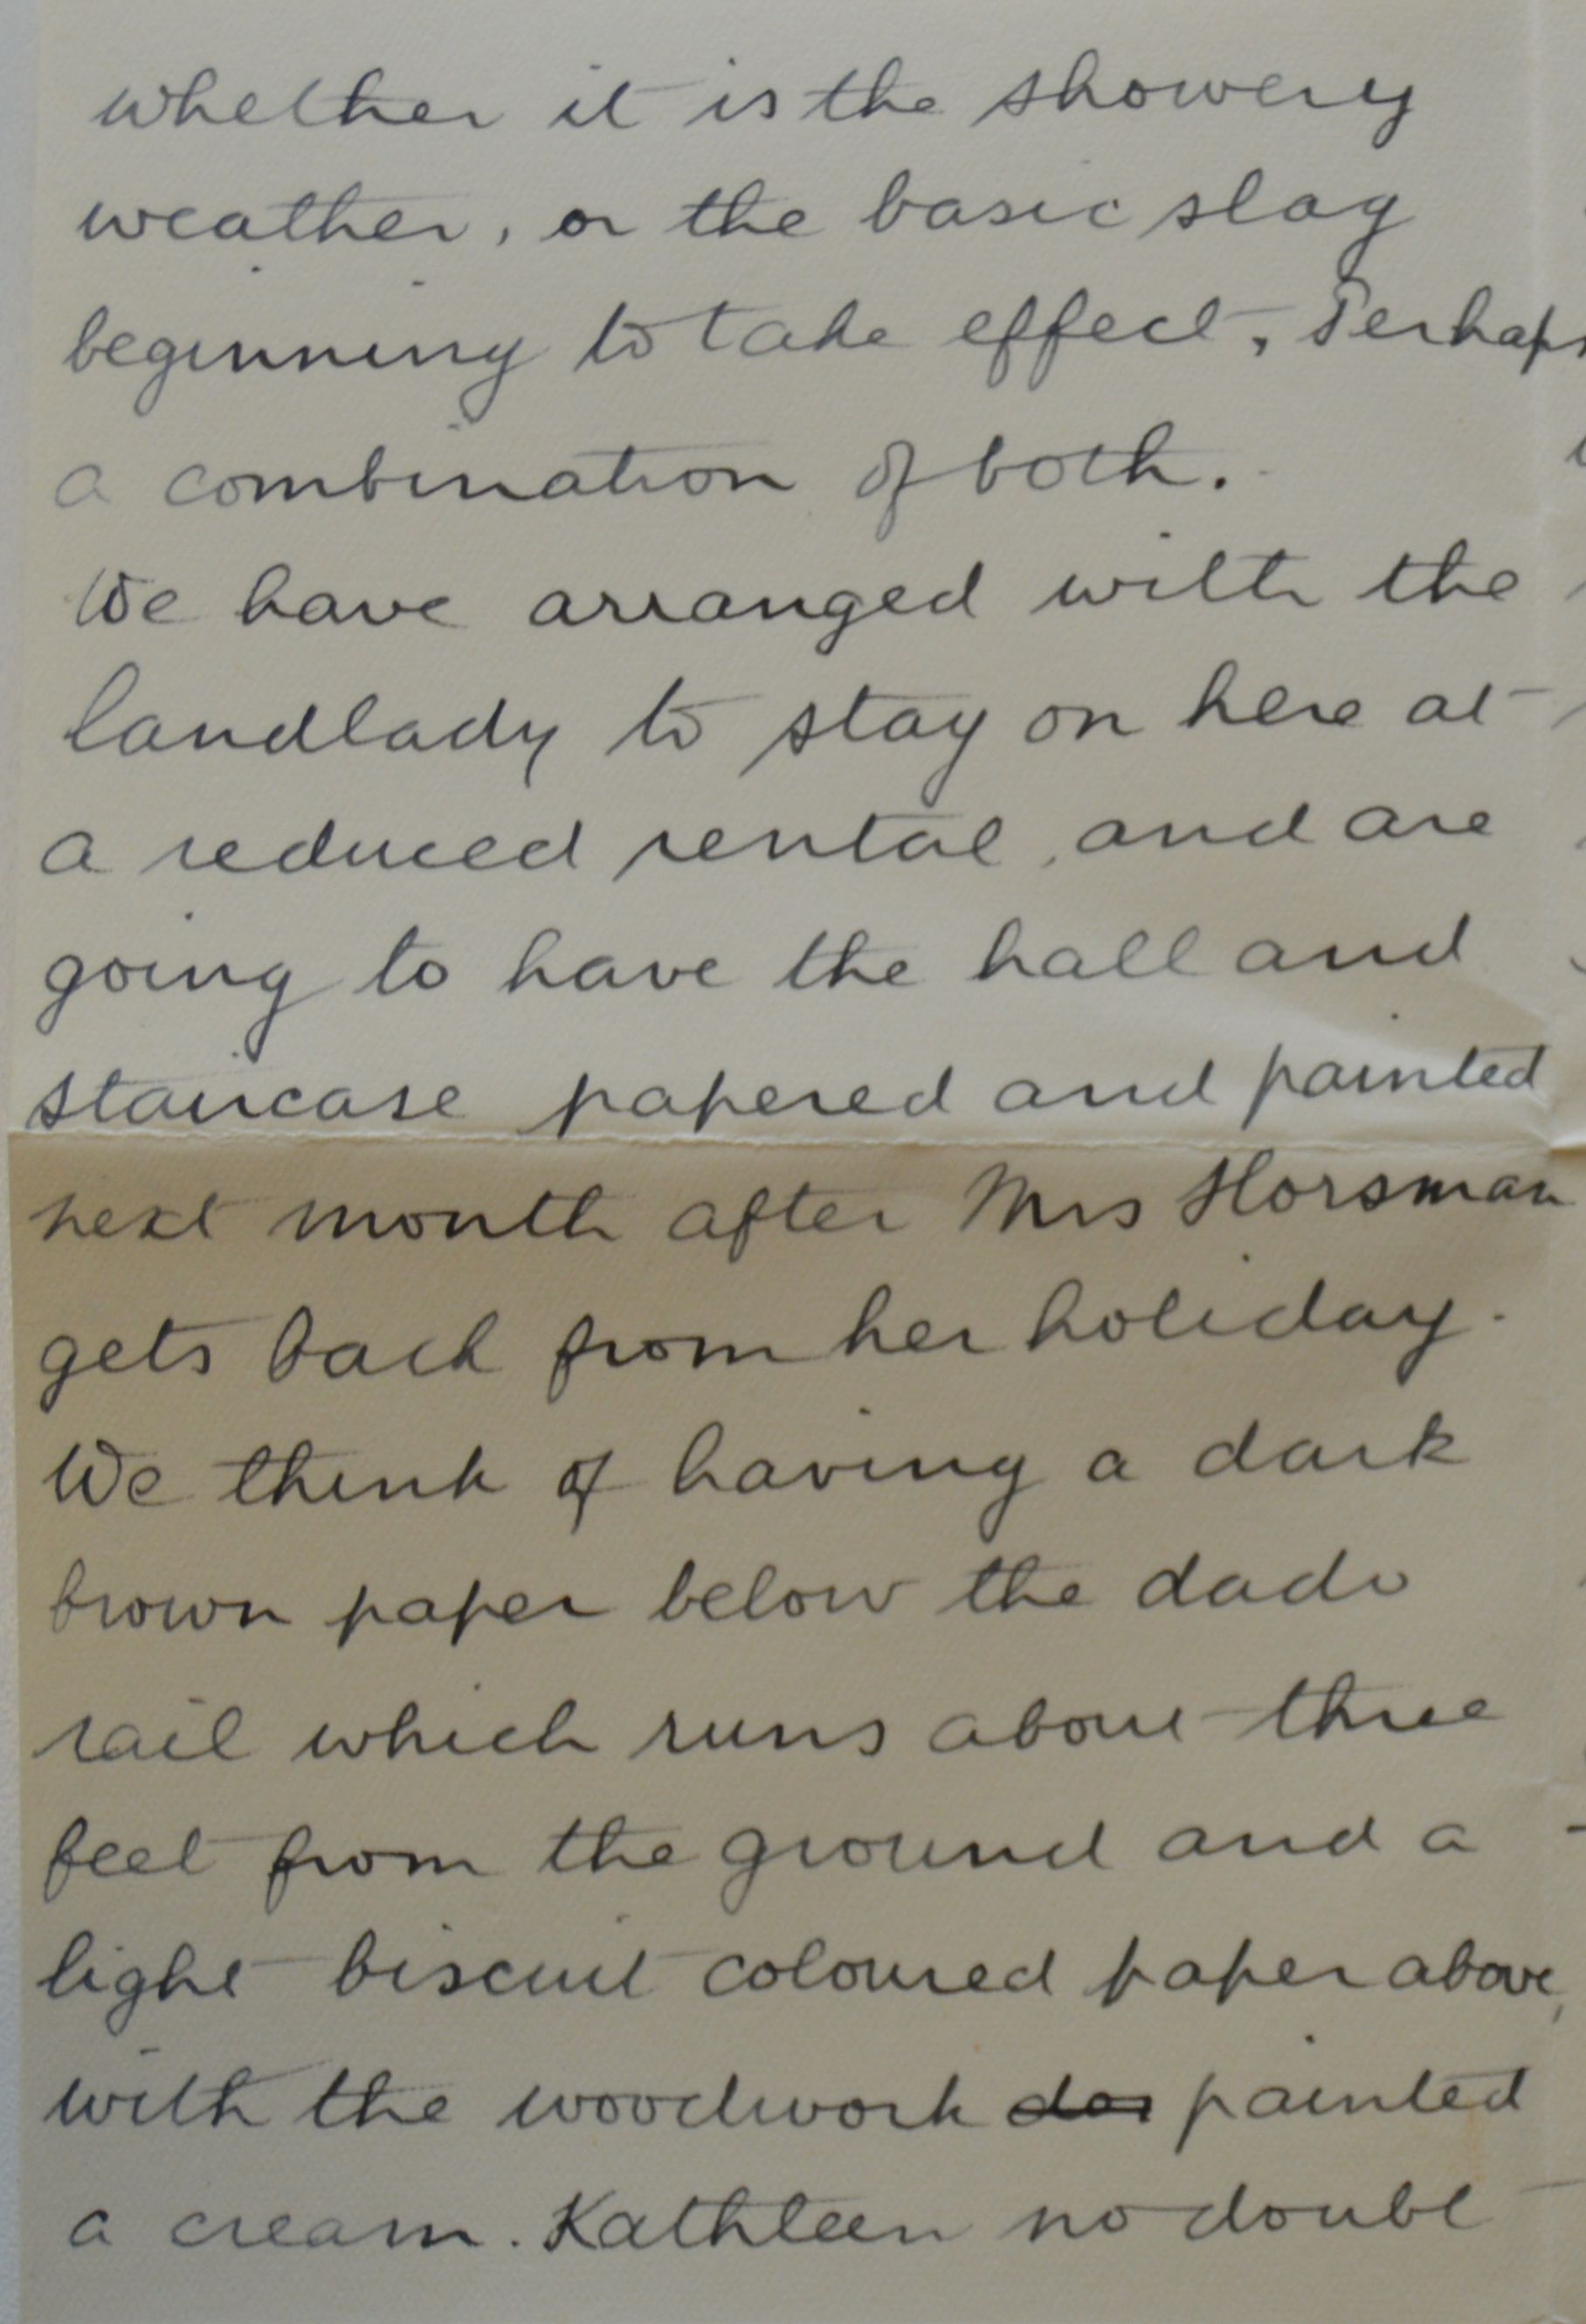 whether it is the showery
weather, or the basic slag
beginning to take effect, Perhaps
a combination of both.
We have arranged with the
landlady to stay on here at
a reduced rental, and are
going to have the hall and
staircase papered and painted
next month after Mrs Horsman
gets back from her holiday.
We think of having a dark
brown paper below the dado
rail which runs about three
feet from the ground and a
light biscuit coloured paper above,
with the woodwork painted
a cream. Kathleen no doubt